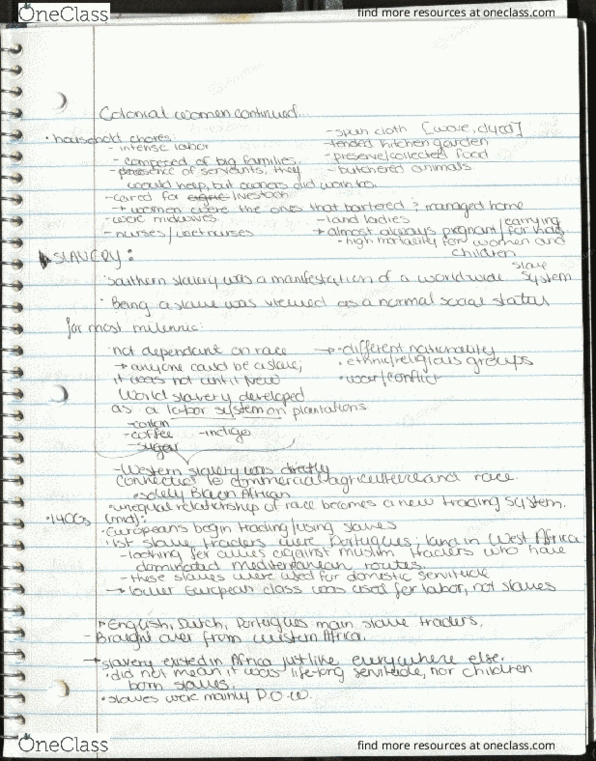 OneClass
find more resources at oneclass.com
Colonial women continued...
• household chores:
- intense labor
- composed of big families.
- presence of servants, they would help, but owners did work too
- cared for livestock
→ women were the ones that bartered & managed home
- were midwives
- nurses/wetnurses
- spun cloth [wove, dyed]
- tended kitchen garden
- preserve/collected food
- butchered animals
- land ladies
→ almost always pregnant/carrying for kids
- high mortality for women and children
SLAVERY:
• Southern slavery was a manifestation of a worldwide slave system
• Being a slave was viewed as a normal social status
for most millennia:
• not dependant on race
→ anyone could be a slave,
it was not until New
World slavery developed
as a labor system on plantations
→ • different nationality
• ethnic/religious groups
• war/conflict
- cotton
- coffee - indigo
- sugar
- Western slavery was directly
connected to commercial agriculture and race.
• solely Black African
• unequal relationship of race becomes a new trading system.
• 1400s (mid):
• Europeans begin trading/using slaves
• 1st slave traders were Portugues; land in West Africa
- looking for allies against muslim traders who have
dominated mediterranean routes.
- these slaves were used for domestic servitude
→ lower European class was used for labor, not slaves
English, Dutch, Portugues main slave traders.
- Brought over from western Africa.
→ slavery existed in Africa just like everywhere else.
• did not mean it was lifelong servitude, nor children
born slaves.
• slaves were mainly P.O.W.
OneClass
find more resources at oneclass.com